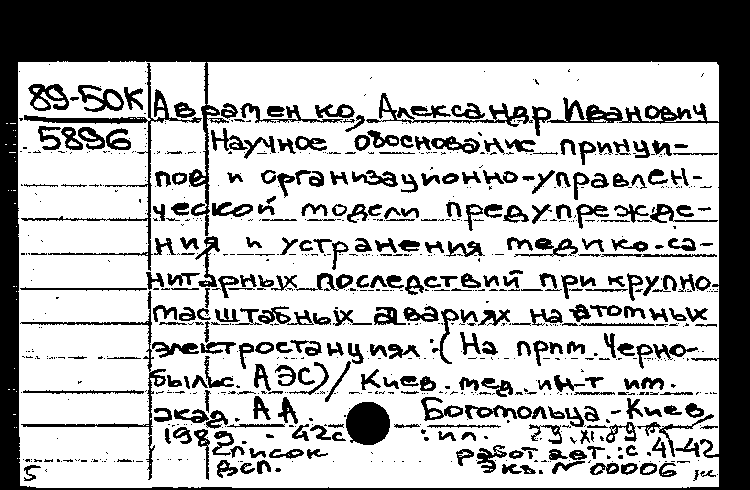 89-50К
5896
Авраменко, Александр Иванович
Научное обоснование принци-
пов и организационно-управлен-
ческой модели предупрежде-
ния и устранения медико-са-
нитарных последствий при крупно-
масштабных авариях на атомных
электростанциях : (На прим. Черно-
быльс. АЭС) / Киев. мед. ин-т им.
акад. А А. Богомольца. - Киев,
1989. - 42с. : ил. 29.XI.89
Список работ авт.: с. 41-42
5 Всп. Экз. № 00006